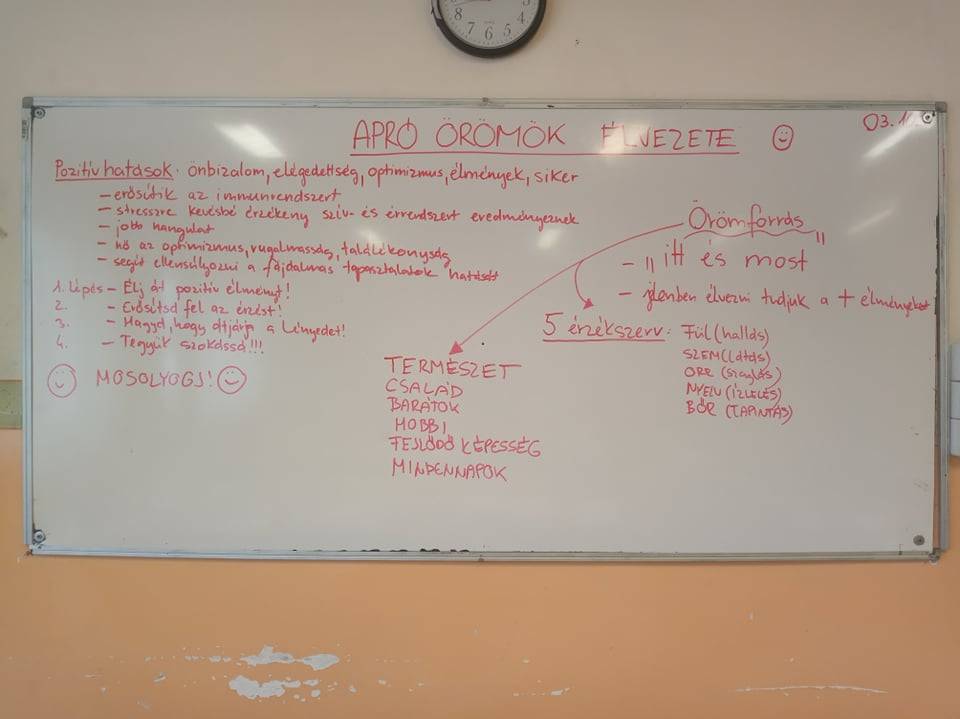 8 7 6 5 4
APRÓ ÖRÖMÖK ÉLVEZETE
03.
Pozitív hatások: önbizalom, elégedettség, optimizmus, élmények, siker
– erősítik az immunrendszert
– stresszre kevésbé érzékeny szív- és érrendszert eredményeznek
– jobb hangulat
– nő az optimizmus, rugalmasság, találékonyság
– segít ellensúlyozni a fájdalmas tapasztalatok hatását
1. lépés – Élj át pozitív élményt!
2. – Erősítsd fel az érzést!
3. – Hagyd, hogy átjárja a lényedet!
4. – Tegyük szokássá!!!
MOSOLYOGJ!
Örömforrás
– "itt és most"
– jelenben élvezni tudjuk a + élményeket
TERMÉSZET
CSALÁD
BARÁTOK
HOBBI
FEJLŐDŐ KÉPESSÉG
MINDENNAPOK
5 érzékszerv: FÜL (hallás)
SZEM (látás)
ORR (szaglás)
NYELV (ÍZLELÉS)
BŐR (TAPINTÁS)